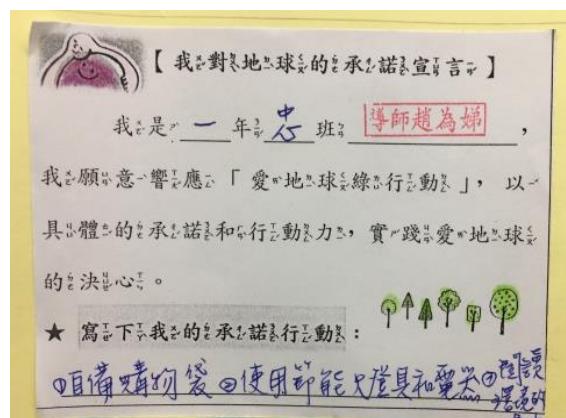 【我對地球的承諾宣言】
我是 一 年 忠 班 導師趙為娣 ,
我願意響應「愛地球綠行動」,以
具體的承諾和行動力,實踐愛地球
的決心。
★ 寫下我的承諾行動:
①自備購物袋②使用節能燈具和電器③閱讀
環境的